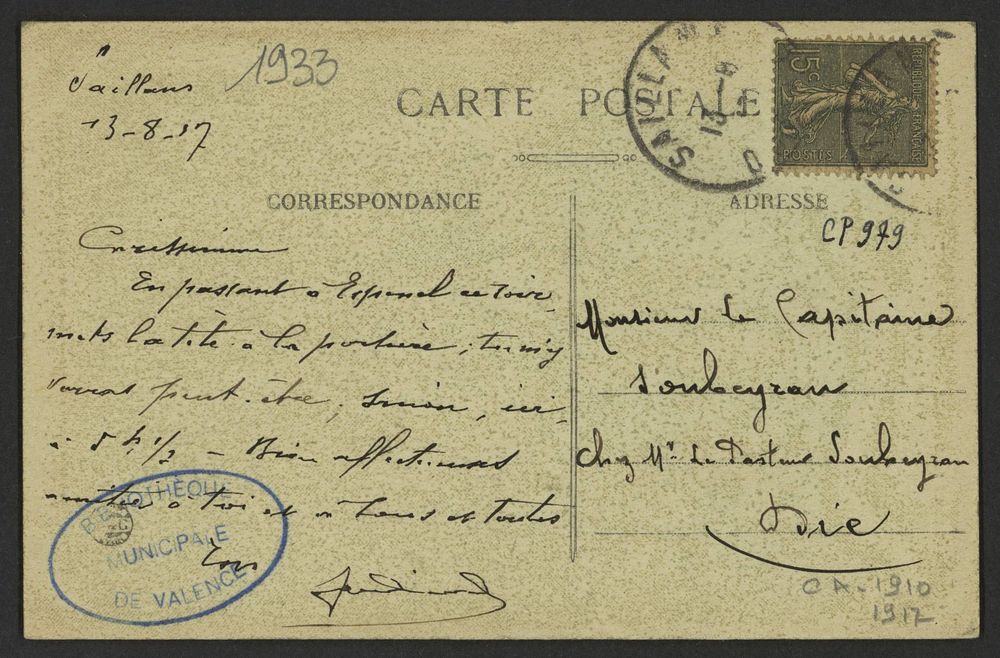 Saillans
13-8-17
1933
CARTE POSTALE
CORRESPONDANCE
Carissime
En passant à Espenel ce soir
mets la tête à la portière ; tu m'y
verras peut-être, sinon, ici
à 5 h 1/2 - Bien affectueuses
amitiés à toi et à tous et toutes
Tors
Ferdinand
BIBLIOTHÈQUE
MUNICIPALE
DE VALENCE
SAILLANS
13 - 8
REPUBLIQUE FRANÇAISE
15c
POSTES
ADRESSE
CP 979
Monsieur le Capitaine
Soubeyran
chez Mr Le Pasteur Soubeyran
Die
CA-1910
1917